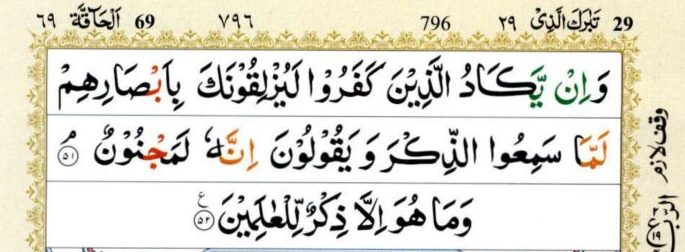 اَلْحَآقَّة ٦٩ 69 ٧٩٦ 796 تَبٰرَكَ الَّذِىْ ٢٩ 29
وَ اِنْ يَّكَادُ الَّذِيْنَ كَفَرُوْا لَيُزْلِقُوْنَكَ بِاَبْصَارِهِمْ
لَمَّا سَمِعُوا الذِّكْرَ وَ يَقُوْلُوْنَ اِنَّهٗ لَمَجْنُوْنٌ ۘ ٥١
وَمَا هُوَ اِلَّا ذِكْرٌ لِّلْعٰلَمِيْنَ ع ٥٢
وقف لازم